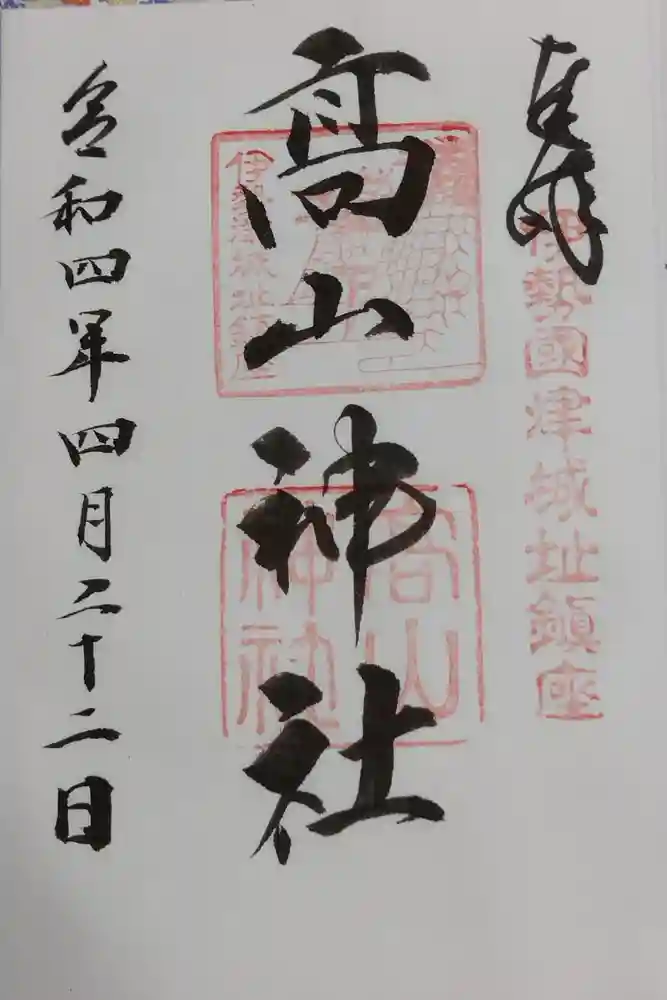 奉拝
伊勢國津城址鎮座
高山神社
高山
神社
令和四年四月二十二日